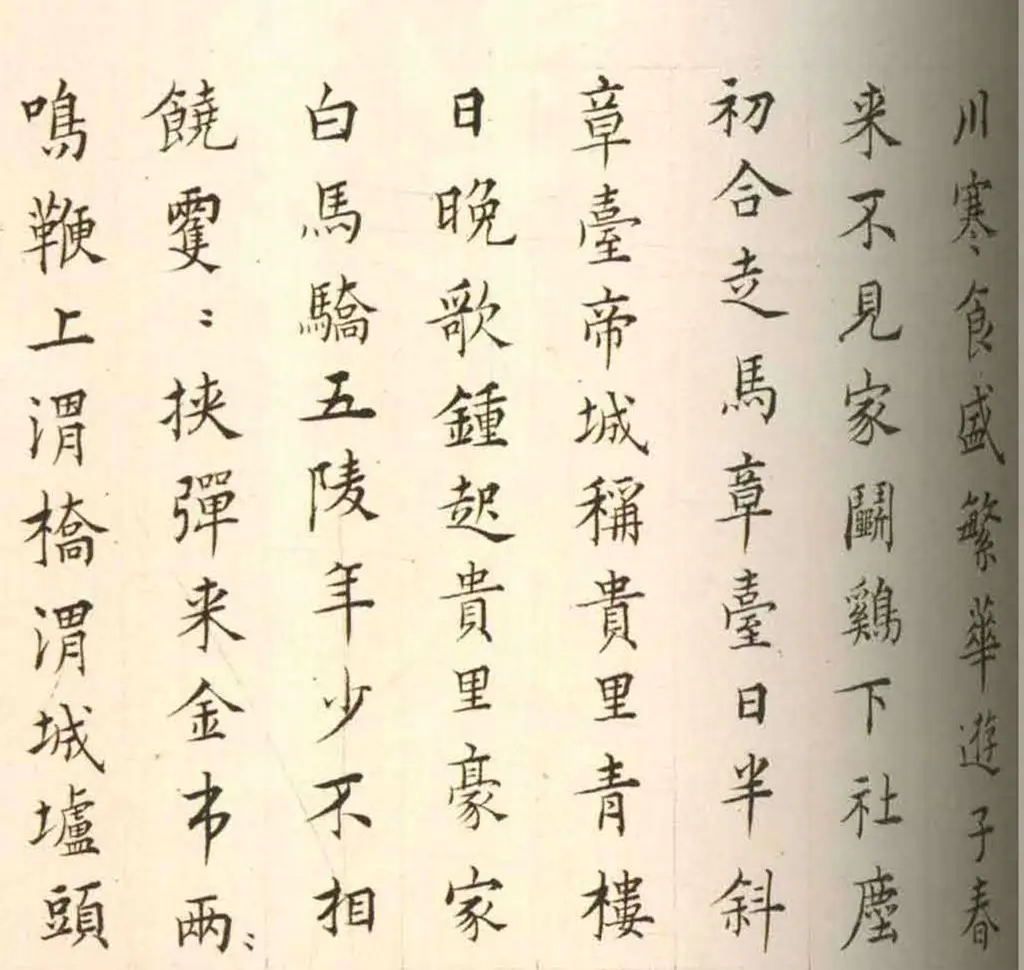 川寒食盛繁華遊子春
来不見家鬭鷄下社塵
初合走馬章臺日半斜
章臺帝城稱貴里青樓
日晚歌鍾起貴里豪家
白馬驕五陵年少不相
饒䨇〻挟彈来金市兩〻
鳴鞭上渭橋渭城壚頭